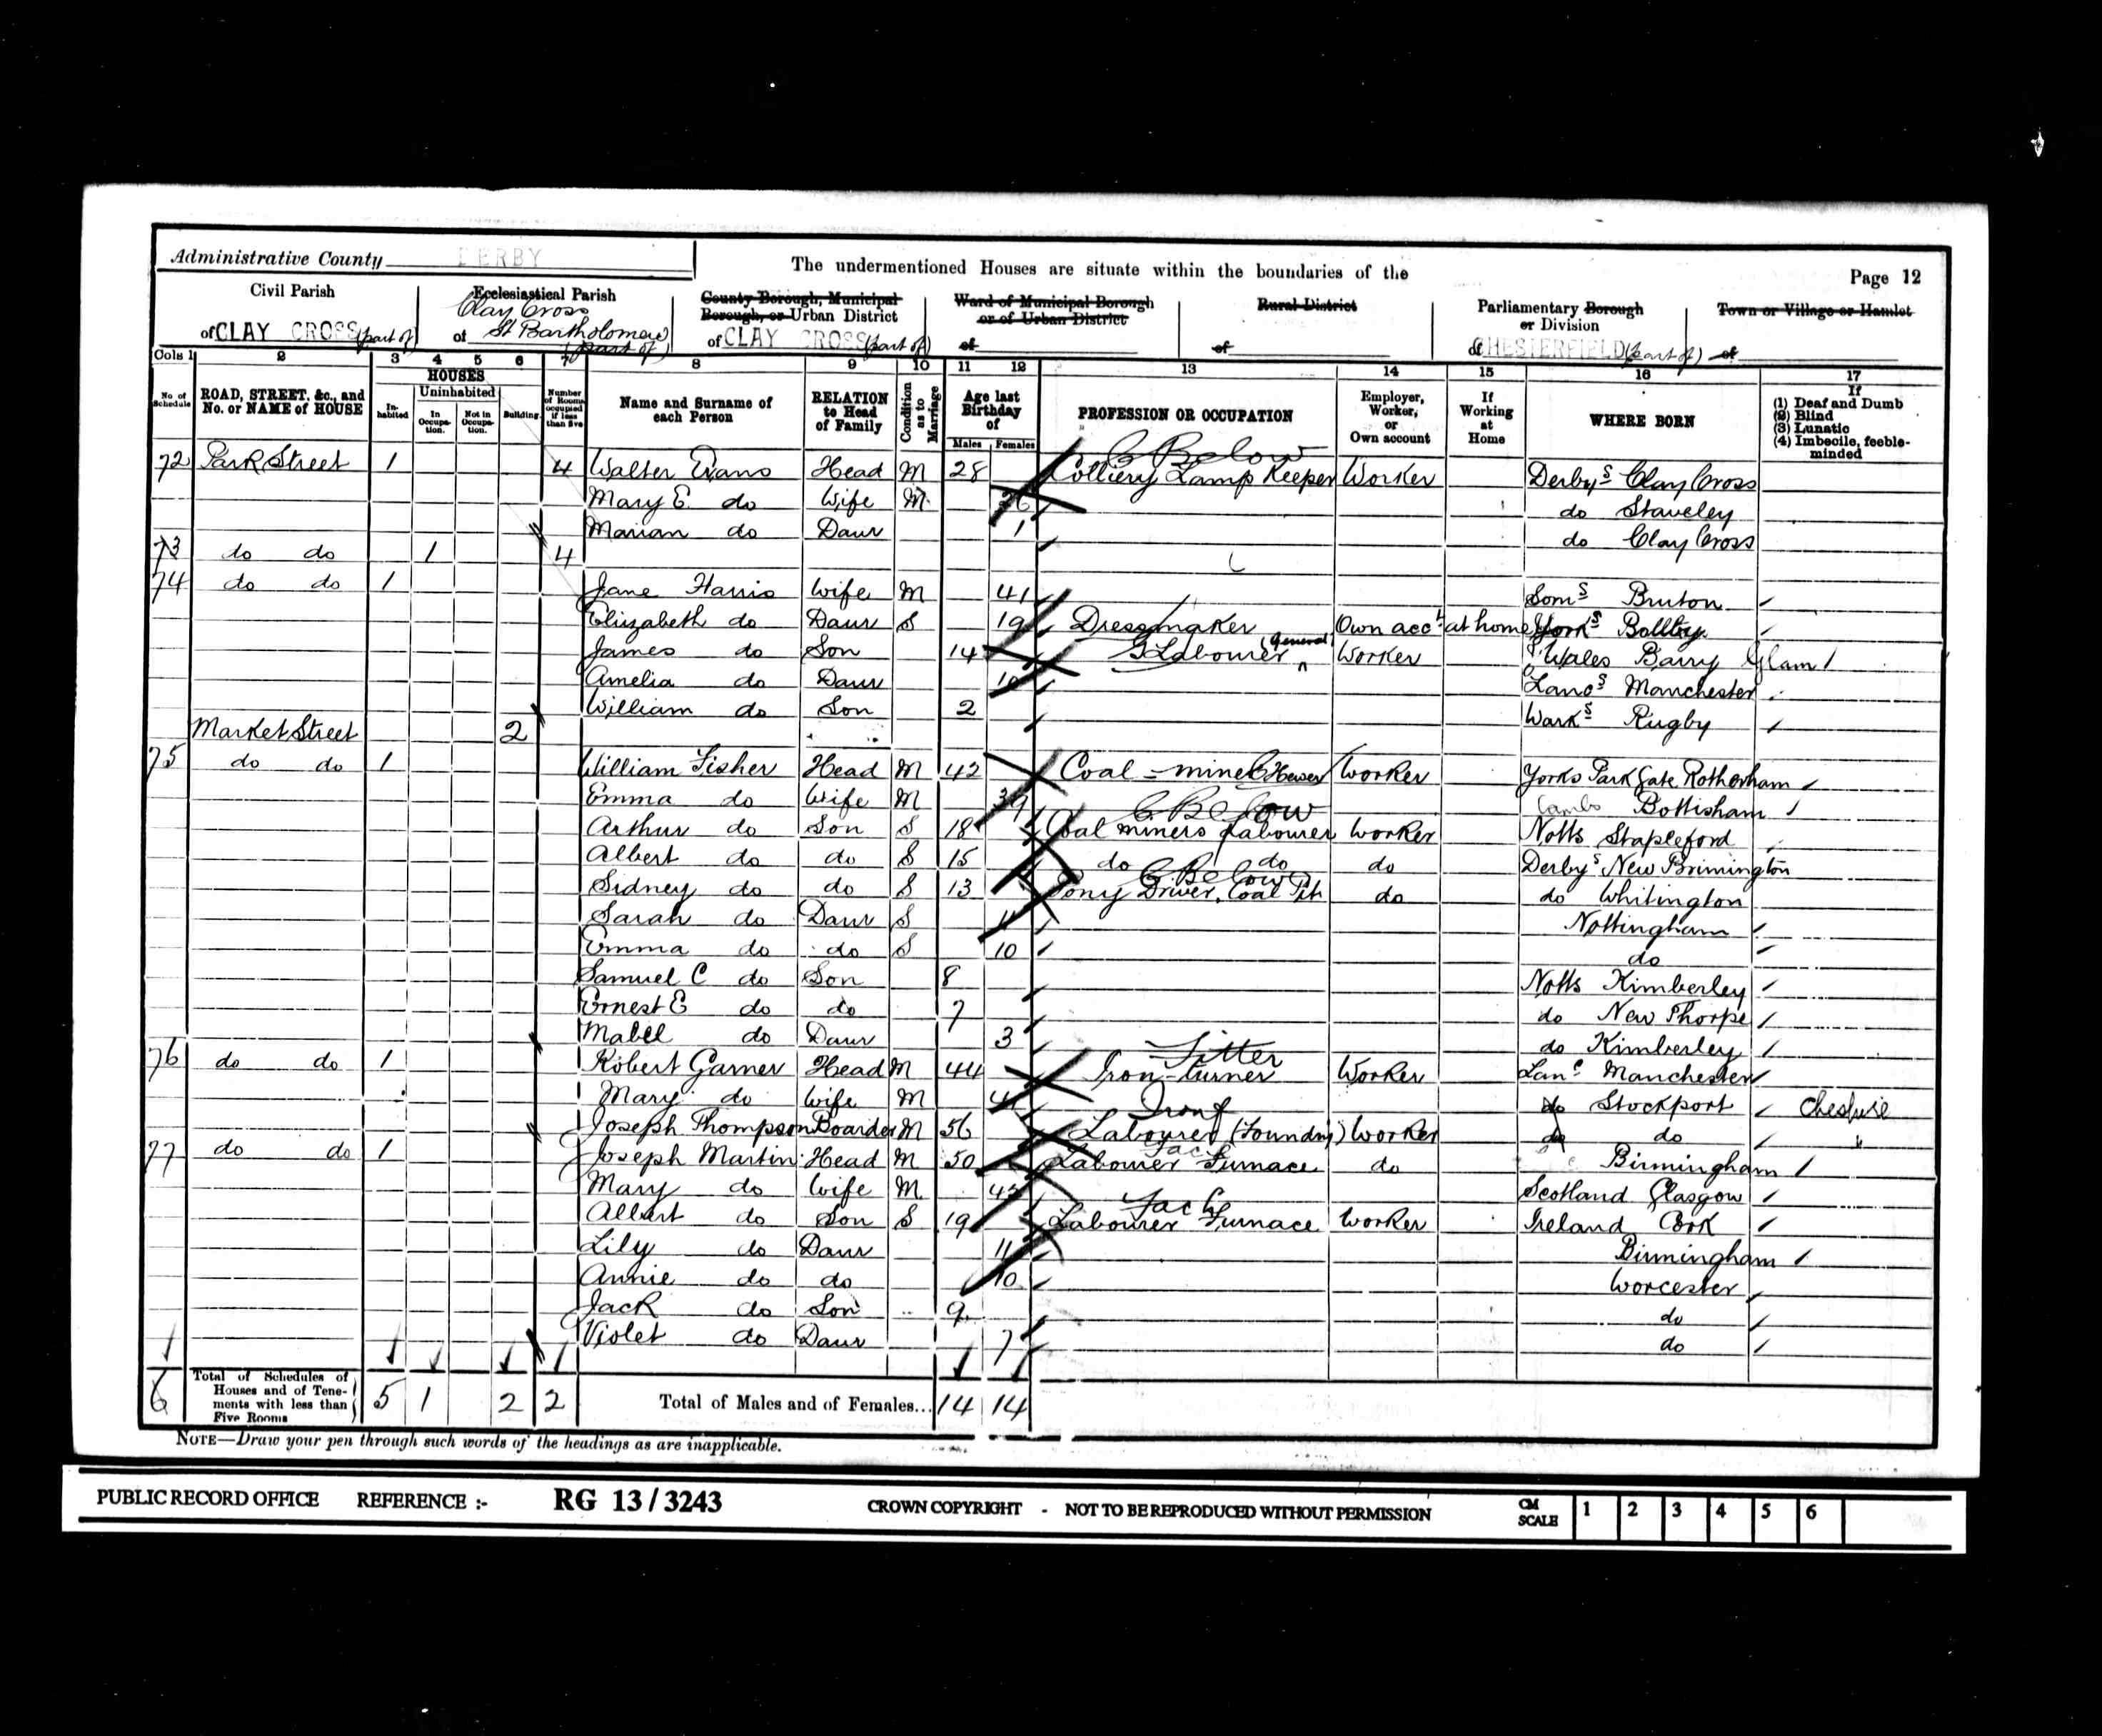 Administrative County DERBY
The undermentioned Houses are situate within the boundaries of the
Page 12
Civil Parish of CLAY CROSS (part of)
Ecclesiastical Parish of Clay Cross St Bartholomew (part of)
County Borough, Municipal Borough, or Urban District of CLAY CROSS (part of)
Ward of Municipal Borough or of Urban District of
Rural District of
Parliamentary Borough or Division of CHESTERFIELD (part of)
Town or Village or Hamlet of
Cols 1 2 3 4 5 6 7 8 9 10 11 12 13 14 15 16 17
No of Schedule
ROAD, STREET, &c., and No. or NAME of HOUSE
HOUSES
Inhabited
Uninhabited
In Occupation.
Not in Occupation.
Building.
Number of Rooms occupied if less than five
Name and Surname of each Person
RELATION to Head of Family
Condition as to Marriage
Age last Birthday of
Males Females
PROFESSION OR OCCUPATION
Employer, Worker, or Own account
If Working at Home
WHERE BORN
If (1) Deaf and Dumb (2) Blind (3) Lunatic (4) Imbecile, feeble-minded
72 Park Street 1 4 Walter Evans Head M 28 Colliery Lamp Keeper Below Worker Derbys Clay Cross
Mary E do Wife M 26 do Staveley
Marian do Daur 1 do Clay Cross
73 do do 1 4
74 do do 1 Jane Harris Wife M 41 Soms Bruton
Elizabeth do Daur S 19 Dressmaker Own acct at home Yorks
James do Son 14 Labourer General Worker S Wales Barry Glam
Amelia do Daur 10 Lancs Manchester
William do Son 2 Warks Rugby
Market Street 2
75 do do 1 William Fisher Head M 42 Coal-miner Hewer Worker Yorks Park Gate Rotherham
Emma do Wife M 39 Cambs Bottisham
Arthur do Son S 18 Coal miners labourer Below Worker Notts Stapleford
Albert do do S 15 do do do Derbys New Brimington
Sidney do do S 13 Pony Driver, Coal Pit Below do do Whitington
Sarah do Daur S 11 Nottingham
Emma do do S 10 do
Samuel C do Son 8 Notts Kimberley
Ernest E do do 7 do New Thorpe
Mabel do Daur 3 do Kimberley
76 do do 1 Robert Garner Head M 44 Iron-turner Fitter Worker Lanc Manchester
Mary do Wife M do Stockport Cheshire
Joseph Thompson Boarder M 56 Labourer (Foundry) Iron Worker do do "
77 do do 1 Joseph Martin Head M 50 Labourer Furnace do Birmingham
Mary do Wife M Scotland Glasgow
Albert do Son S 19 Labourer Furnace Worker Ireland Cork
Lily do Daur 11 Birmingham
Annie do do 10 Worcester
Jack do Son 9 do
Violet do Daur 7 do
6 Total of Schedules of Houses and of Tenements with less than Five Rooms 5 1 2 2 Total of Males and of Females... 14 14
NOTE—Draw your pen through such words of the headings as are inapplicable.
PUBLIC RECORD OFFICE REFERENCE :- RG 13/3243 CROWN COPYRIGHT - NOT TO BE REPRODUCED WITHOUT PERMISSION CM SCALE 1 2 3 4 5 6